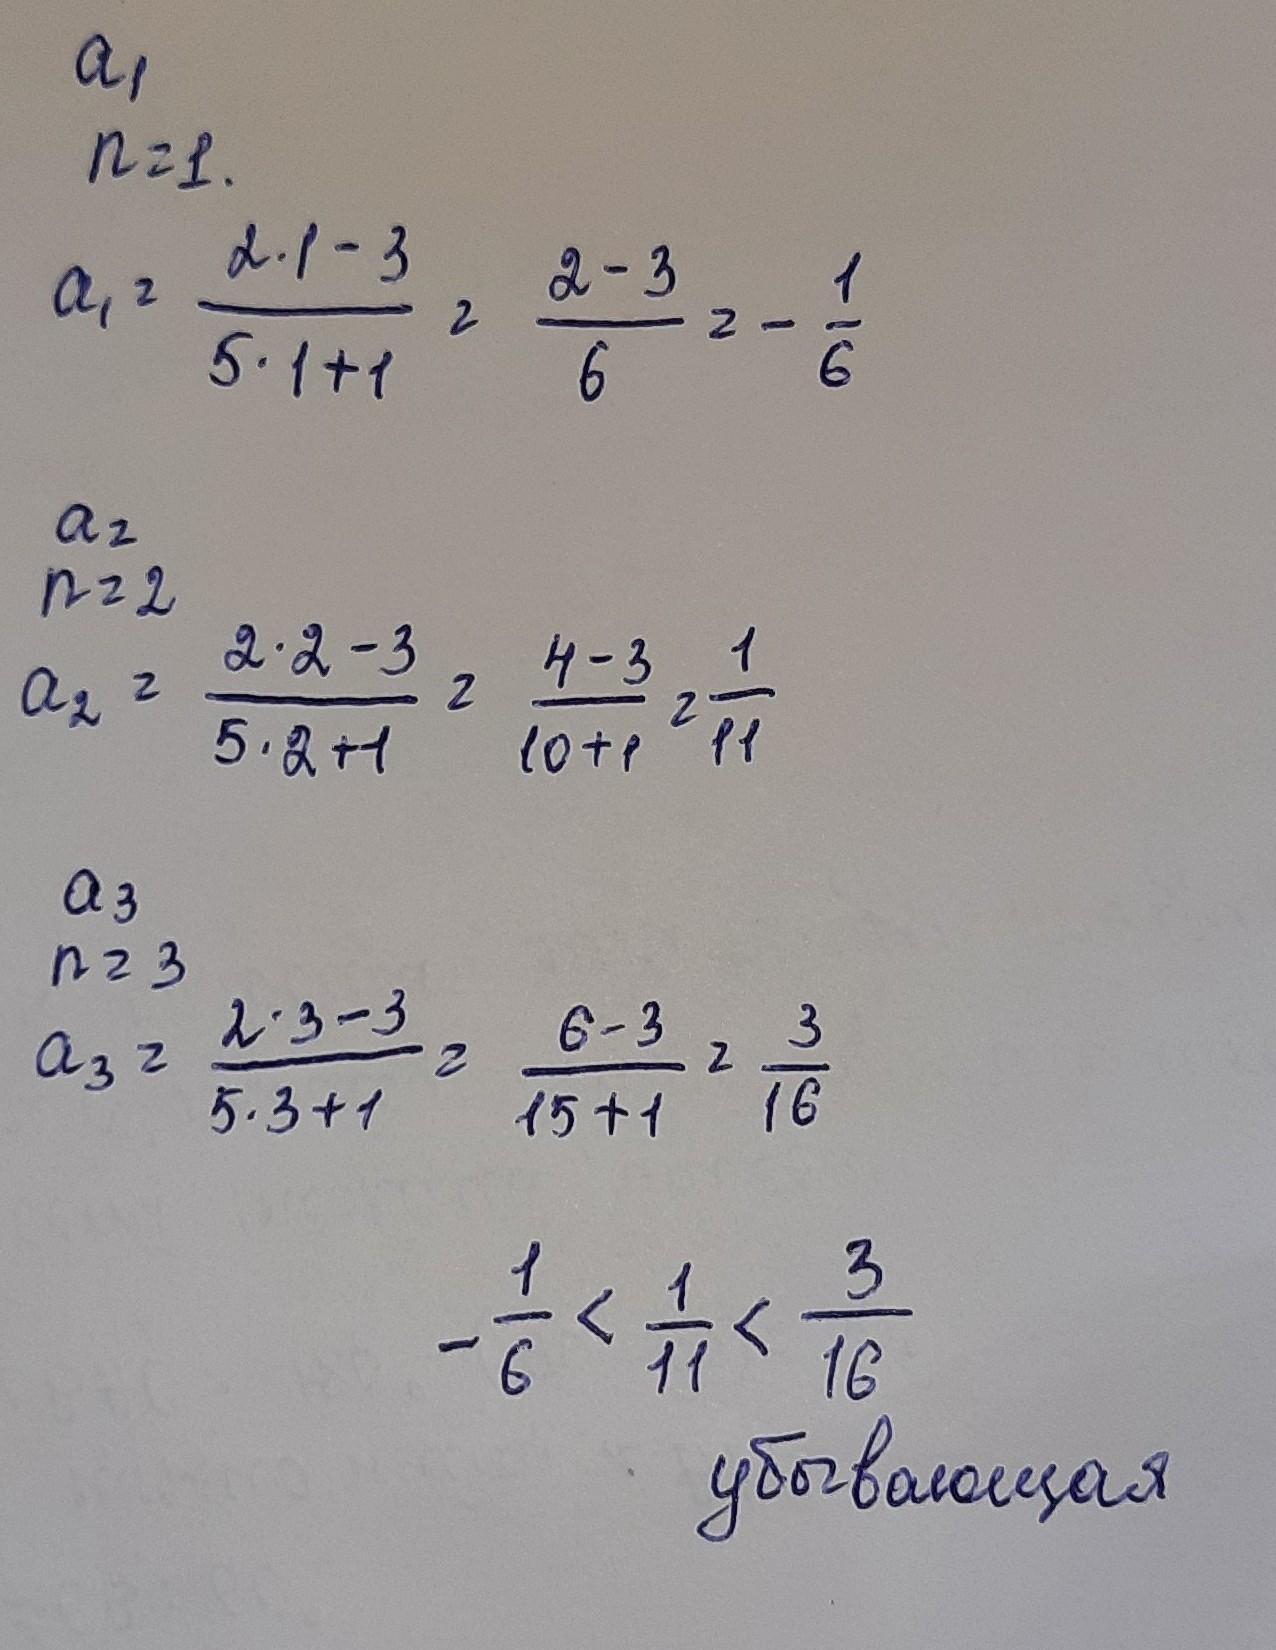 a₁
n=1.
a₁ = \frac{2·1-3}{5·1+1} = \frac{2-3}{6} = -\frac{1}{6}
a₂
n=2
a₂ = \frac{2·2-3}{5·2+1} = \frac{4-3}{10+1} = \frac{1}{11}
a₃
n=3
a₃ = \frac{2·3-3}{5·3+1} = \frac{6-3}{15+1} = \frac{3}{16}
-\frac{1}{6} < \frac{1}{11} < \frac{3}{16}
убывающая